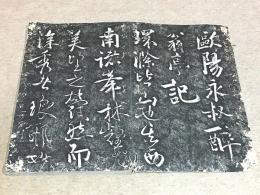 歐陽永叔醉
翁亭記
環滁皆山也其西
南諸峯林壑
美望之蔚然而
深秀者琅邪也